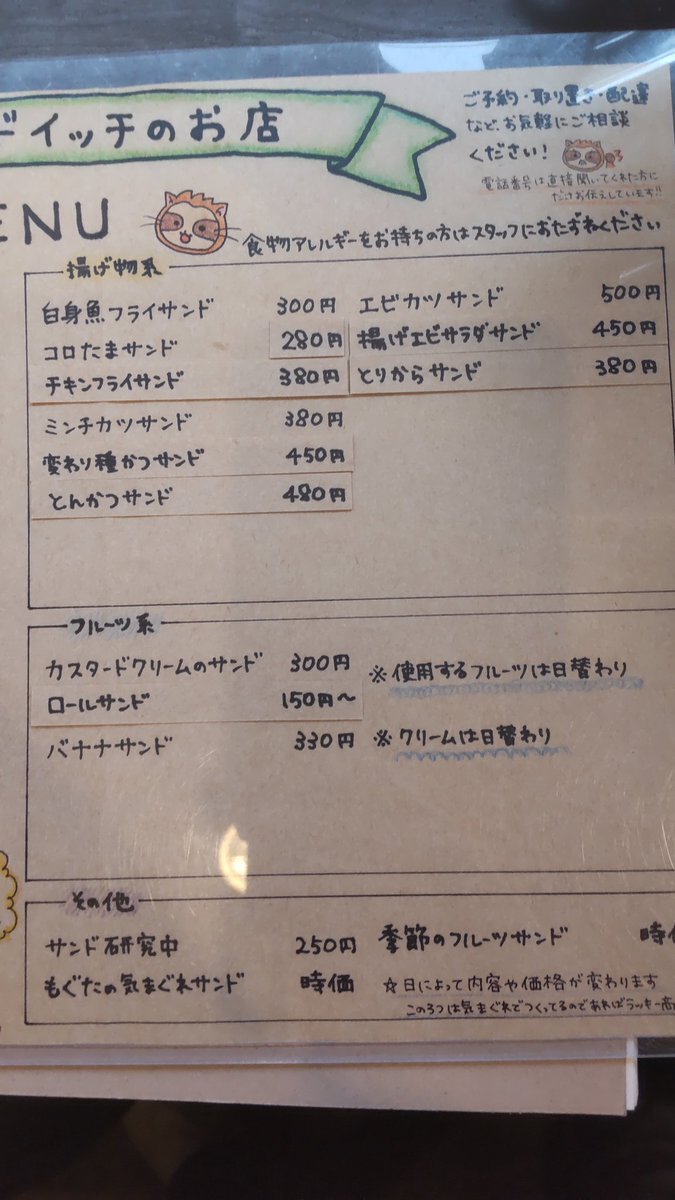 ドイッチのお店
ご予約・取り置き・配達
など、お気軽にご相談
ください!
電話番号は直接聞いてくれた方に
だけお伝えしています!!
ENU
食物アレルギーをお持ちの方はスタッフにおたずねください
揚げ物系
白身魚フライサンド 300円
コロたまサンド 280円
チキンフライサンド 380円
ミンチカツサンド 380円
変わり種かつサンド 450円
とんかつサンド 480円
エビカツサンド 500円
揚げエビサラダサンド 450円
とりからサンド 380円
フルーツ系
カスタードクリームのサンド 300円
※使用するフルーツは日替わり
ロールサンド 150円~
バナナサンド 330円
※クリームは日替わり
その他
サンド研究中 250円
もぐたの気まぐれサンド 時価
季節のフルーツサンド 時
☆日によって内容や価格が変わります
この3つは気まぐれでつくってるのであればラッキー商